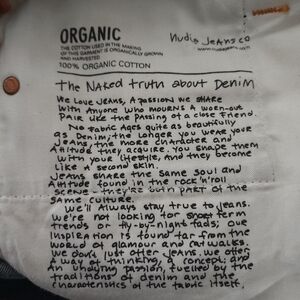 ORGANIC
THE COTTON USED IN THE MAKING
OF THIS GARMENT IS ORGANICALLY GROWN
AND HARVESTED
100% ORGANIC COTTON
Nudie Jeans co
The Naked truth about Denim
We Love Jeans, A passion we share
with Anyone who mourns A worn-out
Pair like the Passing of a close Friend.
No Fabric Ages quite as beautifully
as Denim; the longer you wear your
Jeans, the more character and
Attitude they acquire. You shape them
with your lifestyle, And they become
Like a second skin.
Jeans share the Same Soul and
Attitude found in the rock 'n' roll
scene - they're both part of the
same culture.
We'll Always stay true to jeans.
We're not looking for short term
trends or fly-by-night fads; our
inspiration is found far from the
world of glamour and catwalks.
We don't just offer jeans. We offer
A way of thinking, a concept, and
An undying passion, fuelled by the
traditions of denim and the
characteristics of the fabric itself.